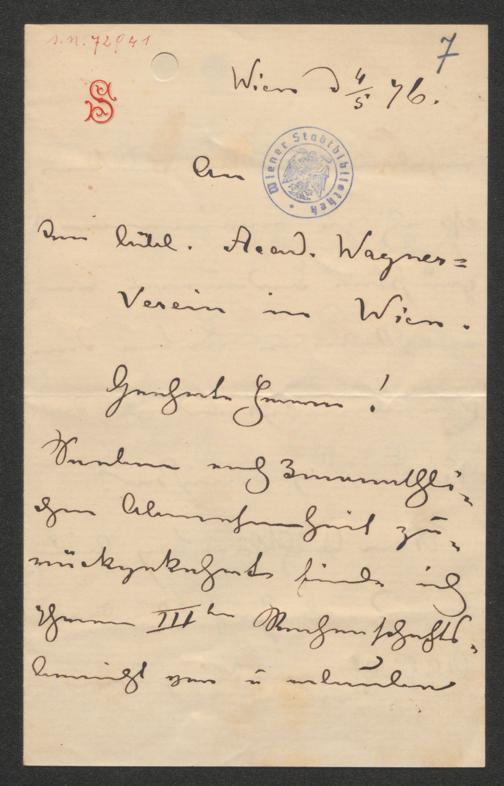 I.N. 72941
7
S
Wien d 4/5 76.
Wiener Stadtbibliothek
An
den löbl. Acad. Wagner=
Verein in Wien.
Geehrte Herren!
Soeben nach 3monatli-
cher Abwesenheit zu-
rückgekehrt finde ich
Ihren IIIten Rechenschafts-
bericht vor u erlaube